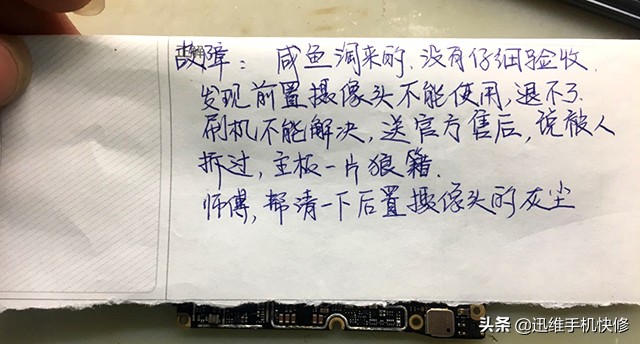 故障：咸鱼淘来的，没有仔细验收，
发现前置摄像头不能使用，退不了
刷机不能解决，送官方售后，说被人
拆过，主板一片狼籍．
师傅，帮清一下后置摄像头的灰尘
头条 @迅维手机快修